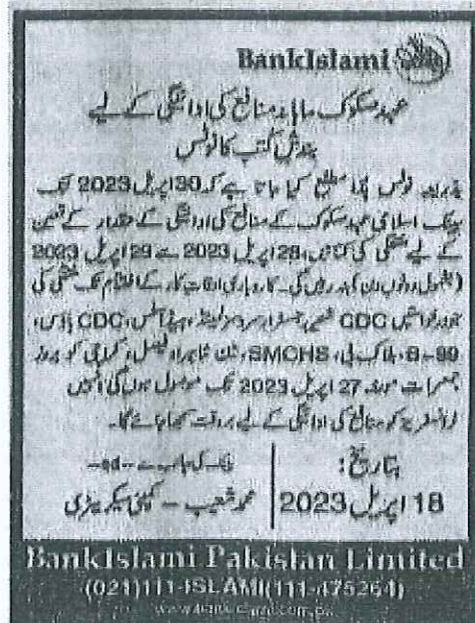 BankIslami
عہد صکوک ماہانہ منافع کی ادائیگی کے لیے
بندش کتب کا نوٹس
بذریعہ نوٹس ہٰذا مطلع کیا جاتا ہے کہ 30 اپریل 2023 تک
بینک اسلامی عہد صکوک کے منافع کی ادائیگی کے حقدار کے تعین
کے لیے منتقلی کی کتابیں، 28 اپریل 2023 سے 29 اپریل 2023
(بشمول دونوں دن) بند رہیں گی۔ کاروباری اوقات کار کے اختتام تک منتقلی کی
جو درخواستیں CDC شیئر رجسٹرار سروسز لمیٹڈ، ہیڈ آفس، CDC ہاؤس،
99-B، بلاک بی، SMCHS، مین شاہراہ فیصل، کراچی کو بروز
جمعرات مورخہ 27 اپریل 2023 تک موصول ہوں گی انہیں
ٹرانسفریز کو منافع کی ادائیگی کے لیے بروقت سمجھا جائے گا۔
بتاریخ:
18 اپریل 2023
بینک کی جانب سے --sd--
محمد شعیب – کمپنی سیکریٹری
BankIslami Pakistan Limited
(021)111-ISLAMI(111-475264)
www.bankislami.com.pk